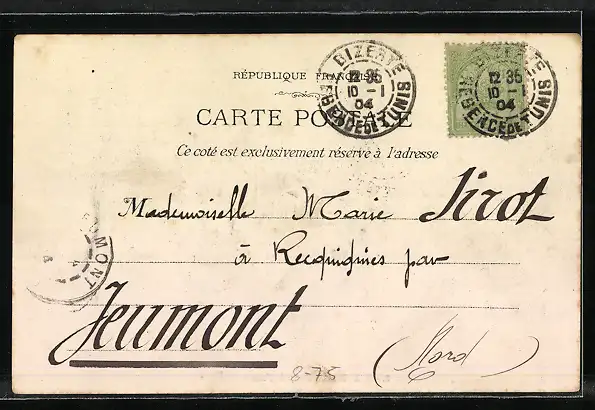 RÉPUBLIQUE FRANÇAISE
BIZERTE
12 35
10 - 1
04
REGENCE DE TUNIS
BIZERTE
12 35
10 - 1
04
REGENCE DE TUNIS
CARTE POSTALE
Ce coté est exclusivement réservé à l'adresse
Mademoiselle Marie Jirot
à Recquignies par
Jeumont
(Nord)
8-75